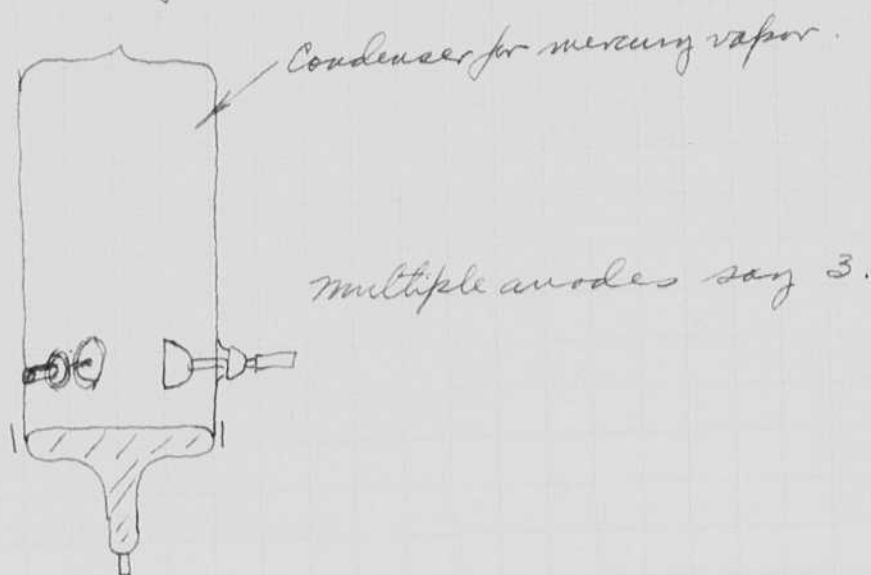 Condenser for mercury vapor.
multiple anodes say 3.